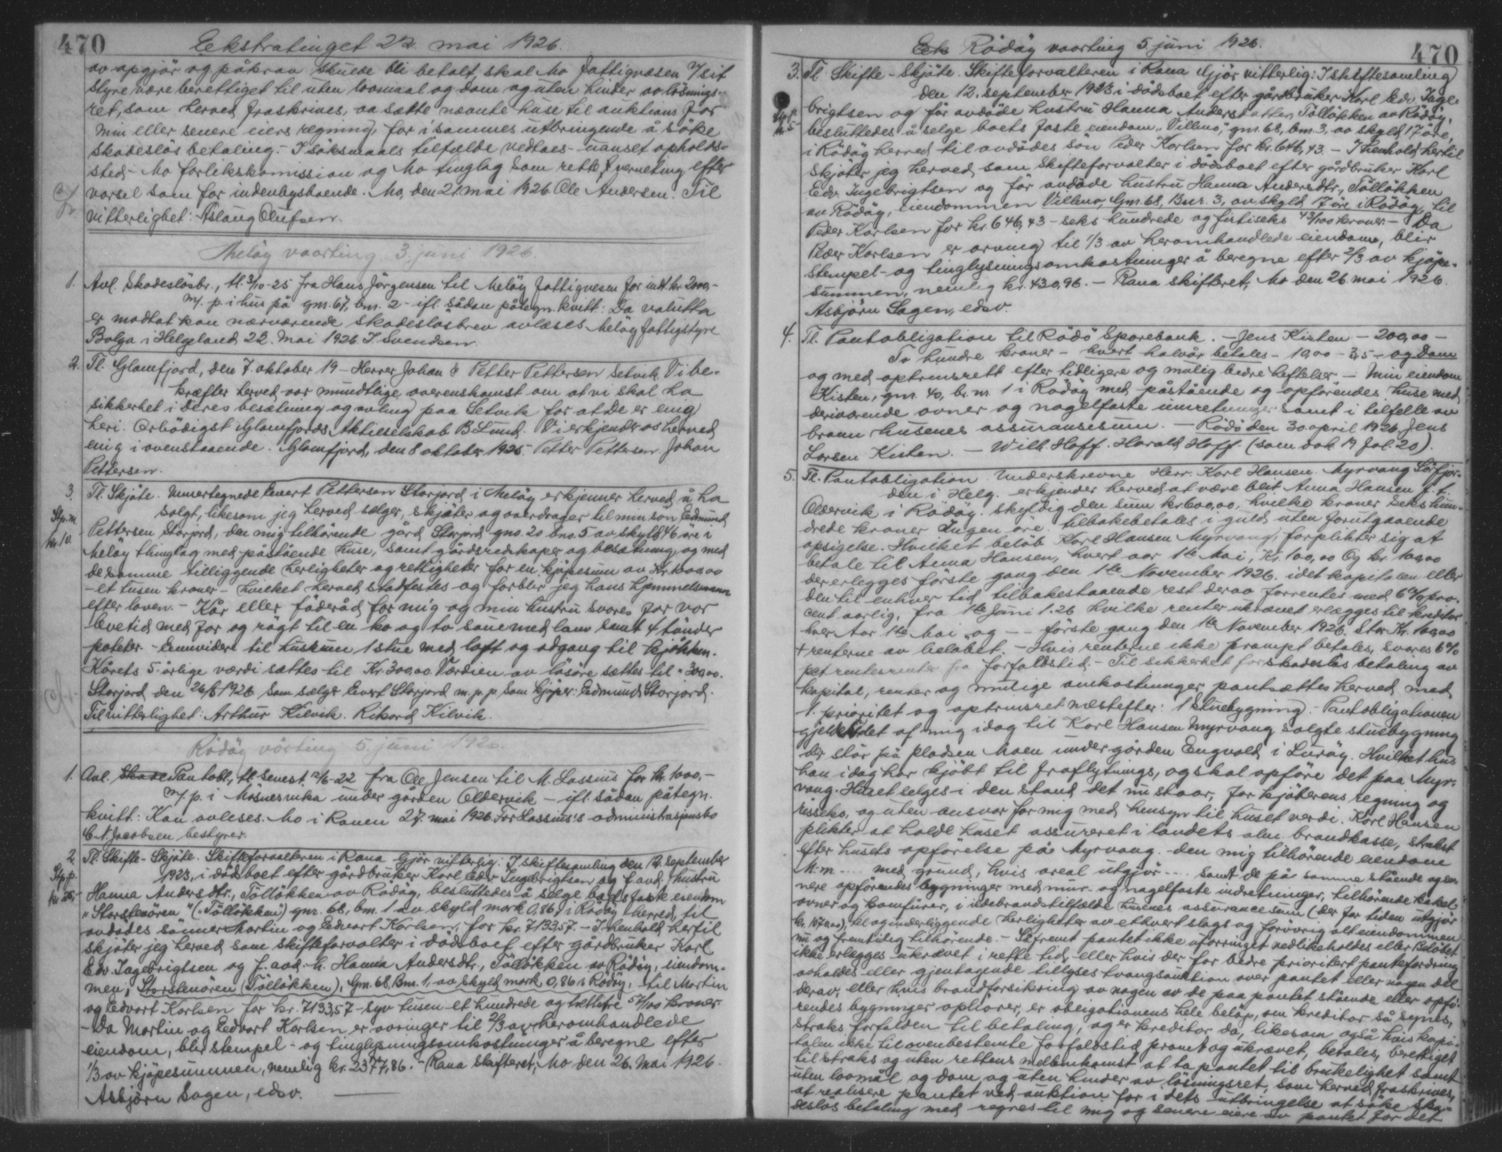 470
Ekstratinget 22. mai 1926.
av opgjör og påkrav skulde bli betalt, skal Mo Fattigvæsen v/ sit
styre være berettiget til uten lovmaal og dom og uten hinder av lösnings-
ret, som herved fraskrives, aa sætte nævnte huse til auktion for
min eller senere eiers regning, for i sammes utbringende å söke
skadeslös betaling. - I söksmaals tilfælde vedtaes - uanset opholds-
sted - Mo forlikskommission og Mo tinglag som rett værneting efter
varsel som for indenbygsboende. Mo, den 21 mai 1926 Ole Andersen. Til
vitterlighet: Aslaug Olufsen.
Melöy vaarting 3. juni 1926.
1. Avl. Skadeslösbr., tl. 3/10-25 fra Hans Jörgensen til Melöy Fattigvesen for intt. kr. 2000,-
m/ p. i hus på gm. 67, bm. 2 - ifl. sådan påtegn. kvitt: Da valutta
er mottat kan nærværende skadeslösbrev avlæses Melöy fattigstyre
Bolga i Helgeland 22. mai 1926 P. Svendsen.
2. Tl. Glomfjord, den 7 oktober 19 - Herrer Johan & Petter Pettersen Setvik Vi be-
kræfter herved vor mundtlige overenskomst om at vi skal ha
sikkerhet i deres besætning og avling paa Setvik for at De er enig
heri. Ærbödigst Glomfjords Aktieselskab B Lund. Vi erkjender os herved
enig i ovenstaaende. Glomfjord, den 8 oktober 1925 Petter Pettersen Johan
Pettersen.
3. Tl. Skjöte. Undertegnede Evert Pettersen Storjord i Melöy erkjenner herved å ha
solgt, likesom jeg herved selger, skjöter og overdrager til min sön Edmund
Pettersen Storjord, den mig tilhörende gård Storjord gno 20 bno 5 av skyld 46 öre i
Melöy thinglag med påstående huse, samt gårdsredskaper og besætning, og med
desamme tilliggende herligheter og rettigheter for en kjöpesum av kr. 1000.00
- et tusen kroner - hvilket herved stadfæstes og forblir jeg hans hjemmelsmann
efter loven. - Kår eller föderåd for mig og min hustru svares for vor
levetid med for og rögt til en ko og to sauer med lam samt 4 tönder
poteter. -Emmvidere til husrum 1 stue med loft og adgang til kjökken.
Kårets 5-årlige værdi sættes til Kr. 300.00 Værdien av lösöre sættes til " 300.00.
Storjord den 26/5 1926, som selger Evert Storjord m.p.p. Som kjöper: Edmund Storjord.
Til vitterlighet: Arthur Kilvik. Rikard Kilvik.
Rödöy vårting 5. juni 1926.
1. Avl. Pantobl., tl. fra Ole Jensen til M. Lassens for kr. 1000,-
m/ p. i Mösnesvika under gården Oldervik - ifl. sådan påtegn.
kvitt: Kan avleses. Mo i Ranen 27. mai 1926 For Lassens's administrasjonsbo
C. A. Jacobsen bestyrer.
2. Tl. Skifte-Skjöte. Skifteforvalteren i Rana Gjör vitterlig: I skiftesamling den 12. september
1923, i dödsboet efter gårdbruker Karl Edv. Ingebrigtsen og f. avd. hustru
Hanna Andersdtr., Tolløkken av Rödöy, besluttedes å selge boets faste eiendom
"Storslenören" (Tolløkken) gm. 68, bm. 1 av skyld mark 0,86 i Rödöy herred, til
avdödes sönner Martin og Edvart Karlsen for kr. 7133.57 - I henhold hertil
skjöter jeg herved som skifteforvalter i dödboet efter gårdbruker Karl
Edv. Ingebrigtsen og f. avd. h. Hanna Andersdtr., Tolløkken av Rödöy, eiendom-
men, Storslenören (Tolløkken), Gm. 68, Bm. 1, av skyld mark 0,86 i Rödöy: til Martin
og Edvart Karlsen for kr. 7133,57 - syv tusen et hundrede og trettitre 57/100 kroner
- Da Martin og Edvart Karlsen er arvinger til 2/3 av heromhandlede
eiendom, blir stempel- og tinglysningsomkostninger å beregne efter
1/3 av kjöpesummen, nemlig kr. 2377,86. - Rana skifterett, Mo den 26. mai 1926.
Asbjörn Sagen, edsv.
470
Rödöy vaarting 5 juni 1926.
3. Tl. Skifte-Skjöte. Skifteforvalteren i Rana Gjör vitterlig: I skiftesamling
den 12. september 1923 i dödsboet efter gårdbruker Karl Edv. Inge-
brigtsen og för avdöde hustru Hanna Andersdatter, Tolløkken av Rödöy,
besluttedes å selge boets faste eiendom "Villmo" gm. 68, bm. 3, av skyld 17 öre,
i Rödöy herred til avdödes sön Peder Karlsen for kr. 646,43. - I henhold hertil
skjöter jeg herved som skifteforvalter i dödsboet efter gårdbruker Karl
Edv. Ingebrigtsen og för avdöde hustru Hanna Andersdtr., Tolløkken
av Rödöy, eiendommen Villmo, Gm. 68, Bnr. 3, av skyld 17 öre i Rödöy, til
Peder Karlsen for kr. 646,43 - seks hundrede og firtiseks 43/100 kroner - Da
Peder Karlsen er arving til 1/3 av heromhandlede eiendom, blir
stempel- og tinglysningsomkostninger å beregne efter 2/3 av kjöpe-
summen, nemlig kr. 430,96. - Rana skifterett, Mo den 26 mai 1926.
Asbjörn Sagen, edsv.
4. Tl. Pantobligation til Rödö Sparebank. - Jens Kisten - 200,00 -
To hundre kroner - hvert halvår betales - 10,00 - 3,5 - og dom
og med optrinsrett efter tidligere og mulig bedre heftelser - Min eiendom
Kisten, gm. 40, br. m 1 i Rödöy med påstående og opförendes huse med
derværende ovner og nagelfaste innretninger samt i tilfelle av
brann husenes assuransesum. - Rödö den 30 april 1926 Jens
Larsen Kisten. - Wilh. Hoff. Harald Hoff (som bok 19 fol. 20).
5. Tl. Pantobligation Underskrevne Herr. Karl Hansen Myrvang Sörfjor-
den i Helg. erkjender herved at være blit Anna Hansen f. t.
Oldervik i Rödöy skyldig den sum kr. 600,00, hvilke kroner Seks hun-
drede kroner Ingen öre. tilbakebetales i guld uten forutgaaende
opsigelse. Hvilket belöb Karl Hansen Myrvang forplikter sig at
betale til Anna Hansen, hvert aar 1ste Mai, Kr. 100,00 Og kr. 100.00
der erlegges förste gang den 1ste November 1926. idet kapitalen eller
den til enhver tid tilbakestaaende rest derav forrentes med 6 % pro-
cent aarlig, fra 1ste Juni 1.26 hvilke renter erlægges til kreditor
hver Aar 1ste Mai og - - förste gang den 1ste November 1926. Stor Kr. 100.00
+ renterne av belöbet. - Hvis renterne ikke prompt betales, svares 6 %
pct rentesrenter fra forfaldstid. - Til sikkerhet for skadeslös betaling av
kapital, renter og mulige omkostninger pantsættes herved med
1. prioritet og optrinsret næstefter: 1 Stuebygning. Pantobligationen
gjelder det af mig idag til Karl Hansen Myrvang solgte stuebygning
der står på pladsen Moen under gården Engvold i Luröy. Hvilket hus
han i dag har kjöbt til fraflytnings, og skal opföre det paa Myr-
vang. Huset selges i den stand det nu staar, for kjöberens regning og
resiko, og uten ansvar for mig med hensyn til huset verdi. Karl Hansen
plikter at holde huset assureret i landets alm. brandkasse, straks
efter husets opförelse på Myrvang. - den mig tilhörende eiendom
M.m. ... med grund, hvis areal utgjör ... samt de på samme stående og se-
nere opförendes bygninger med mur- og nagelfaste indretninger, tilhörende kakel-
ovner og komfürer, i ildebrandstilfælde husenes assurancesum (der for tiden utgjör
kr. ), tilogunderliggende herligheter av ethvert slags og forövrig alt eiendommen
nu og fremtidig tilhörende. - Såfremt pantet ikke uforringet vedlikeholdes eller Belöbet
ikke erlægges ukrævet i rette tid eller hvis der for bedre prioritert pantefordring
avholdes eller gjentagende tillyses tvangsauktion over pantet eller nogen del
derav, eller hvis brandforsikring av nogen av de paa pantet stående eller opfö-
rendes bygninger ophörer, er obligationens hele belöp, om kreditor så synes,
straks forfalden til betaling, og er kreditor da, likesom også hvis kapi-
talen ikke til ovenbestemte forfaldstid promt og ukrævet, betales, berettiget
til straks og uten rettens mellemkomst at ta pantet til brukelighet samt
uten lovmål og dom og uten hinder av lösningsret, som herved fraskrives,
at realisere pantet ved auktion for i dets utbringelse at söke ska-
deslös betaling med regres til mig og senere eiere av pantet for det